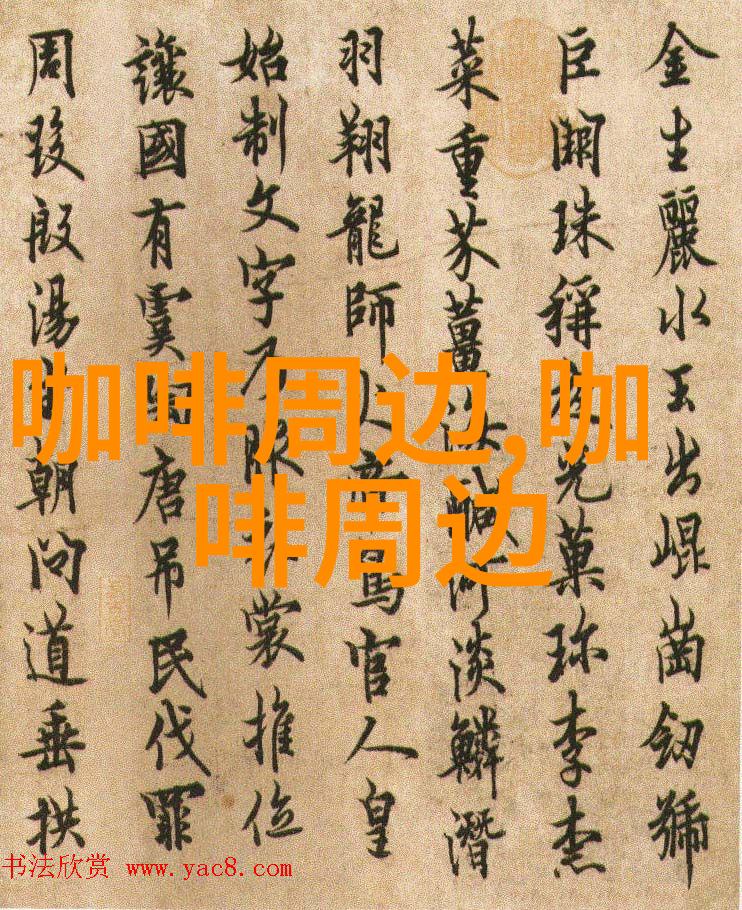 金生麗水玉出崐崗劒號
巨闕珠稱夜光菓珍李柰
菜重芥薑海鹹河淡鱗潛
羽翔龍師火帝鳥官人皇
始制文字乃服衣裳推位
讓國有虞陶唐吊民伐罪
周發殷湯坐朝問道垂拱
咖啡周边,咖
啡周边
书法欣赏 www.yac8.com